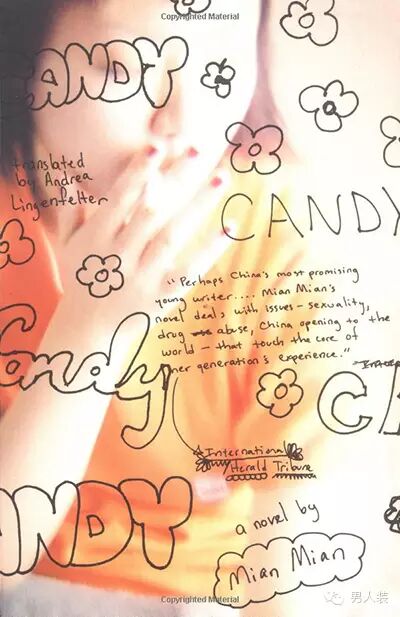 Copyrighted Material
CANDY
translated
by Andrea
Lingenfelter
CANDY
"Perhaps China's most promising
young writer.... Mian Mian's
novel deals with issues – sexuality,
drug abuse, China opening to the
world – that touch the core of
her generation's experience."
Candy
International
Herald Tribune
C
ANDY
a novel by
Mian Mian
男人装
Copyrighted Material